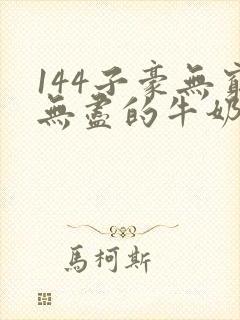 144子豪無窮
無盡的牛奶
馬柯斯